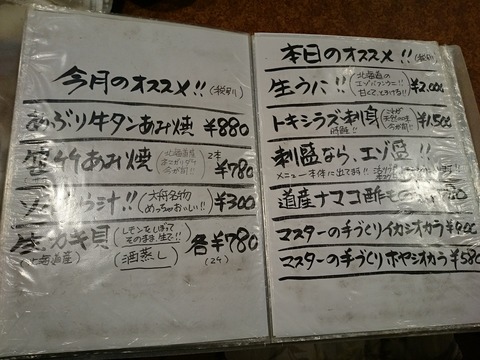 今月のオススメ!!
(税別)
あぶり牛タンあみ焼 ¥880
竹あみ焼
北海道産
2本
¥780
汁!!
大舟名物
めっちゃおいしい!!
¥300
生カキ貝
レモンをしぼって
そのまま生で!!
(酒蒸し)
各¥780
(2ケ)
本日のオススメ!!
(税別)
生うに!!
北海道の
エゾバフンウニ!!
甘くて、とろける!!
¥2,000
トキシラズ刺身
¥1,500
刺盛なら、エゾ盛!!
メニュー本体に出てます!!
道産ナマコ酢モ
マスターの手づくりイカシオカラ ¥400
マスターの手づくりホヤシオカラ ¥580